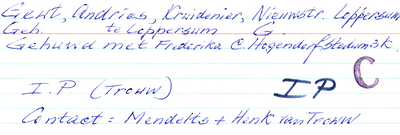 Gert, Andries, Kruidenier, Nieuwstr. Loppersum
Geb. te Loppersum G.
Gehuwd met Frederika C. Hogendorf Stedum 3 k.
I.P (Trouw) IP C
Contact = Mendelts + Henk van Trouw